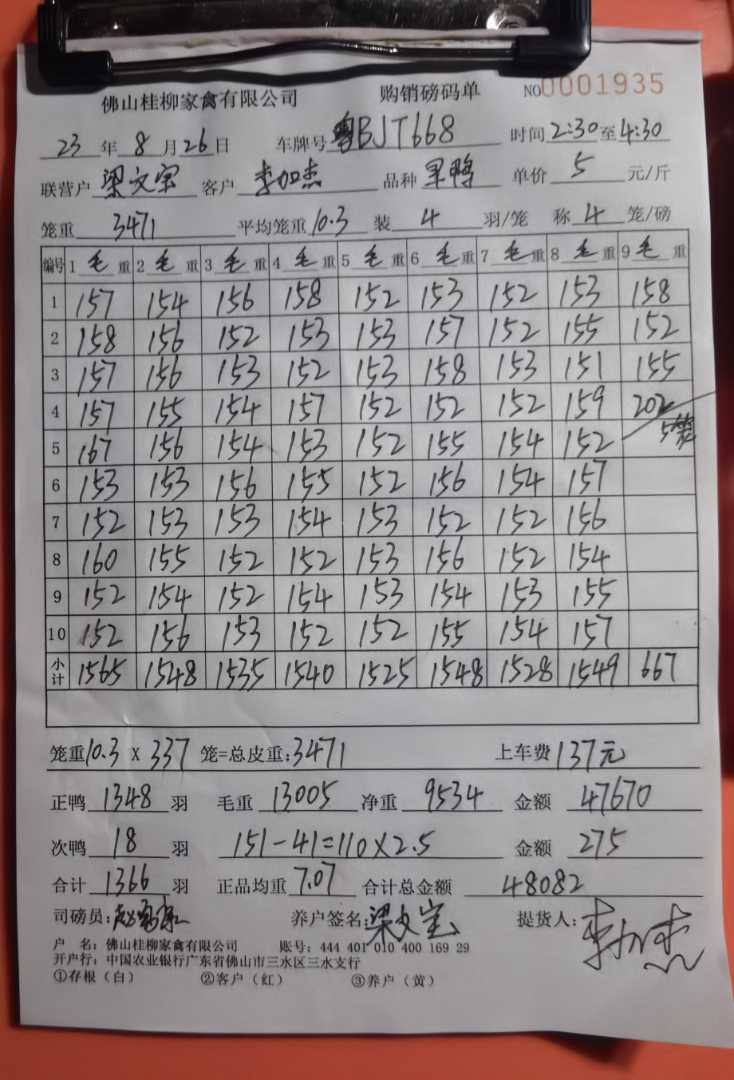 佛山桂柳家禽有限公司 购销磅码单 NO0001935
23年8月26日 车牌号粤BJT668 时间2:30至4:30
联营户梁文宝 客户李加杰 品种旱鸭 单价5元/斤
笼重3471 平均笼重10.3 装4羽/笼 称4笼/磅
编号 1毛重 2毛重 3毛重 4毛重 5毛重 6毛重 7毛重 8毛重 9毛重
1 157 154 156 158 152 153 152 153 158
2 158 156 152 153 153 157 152 155 152
3 157 156 153 152 153 158 153 151 155
4 157 155 154 157 152 152 152 159 202
5笼
5 167 156 154 153 152 155 154 152
6 153 153 156 155 152 156 154 157
7 152 153 153 154 153 152 152 156
8 160 155 152 152 153 156 152 154
9 152 154 152 154 153 154 153 155
10 152 156 153 152 152 155 154 157
小计 1565 1548 1535 1540 1525 1548 1528 1549 667
笼重10.3 X 337 笼=总皮重:3471 上车费137元
正鸭1348羽 毛重13005 净重9534 金额47670
次鸭18羽 151-41=110×2.5 金额275
合计1366羽 正品均重7.07 合计总金额48082
司磅员: 养户签名:梁文宝 提货人:李加杰
户 名:佛山桂柳家禽有限公司 账号:444 401 010 400 169 29
开户行:中国农业银行广东省佛山市三水区三水支行
①存根(白) ②客户(红) ③养户(黄)